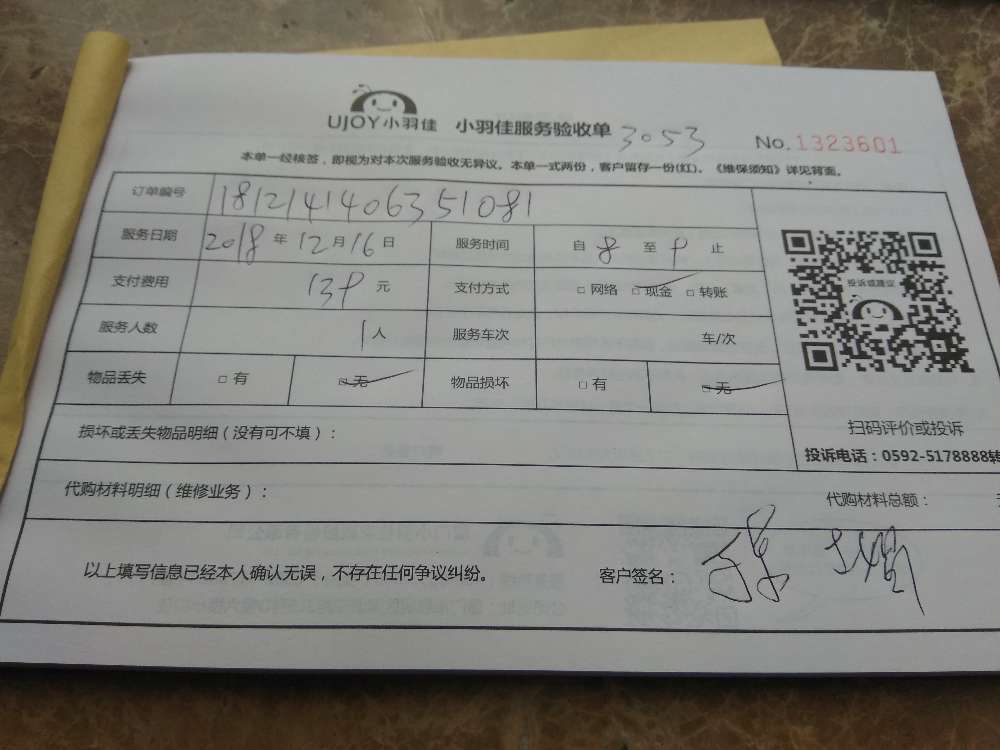 UJOY小羽佳 小羽佳服务验收单 3053 No.1323601
本单一经核签，即视为对本次服务验收无异议。本单一式两份，客户留存一份(红)。《维保须知》详见背面。
订单编号 181214140635 1081
服务日期 2018年12月16日 服务时间 自8至9止
支付费用 139元 支付方式 □网络 □现金 □转账
服务人数 1人 服务车次 车/次
物品丢失 □有 □无 物品损坏 □有 □无
投诉或建议
扫码评价或投诉
投诉电话：0592-5178888转
损坏或丢失物品明细（没有可不填）：
代购材料明细（维修业务）： 代购材料总额：
以上填写信息已经本人确认无误，不存在任何争议纠纷。 客户签名：